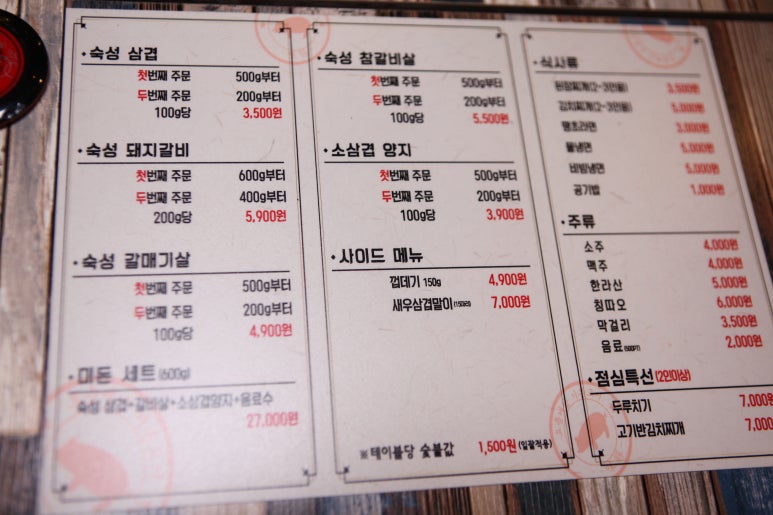 • 숙성 삼겹
첫번째 주문 500g부터
두번째 주문 200g부터
100g당 3,500원
• 숙성 돼지갈비
첫번째 주문 600g부터
두번째 주문 400g부터
200g당 5,900원
• 숙성 갈매기살
첫번째 주문 500g부터
두번째 주문 200g부터
100g당 4,900원
• 미돈 세트 (600g)
숙성 삼겹+갈비살+소삼겹양지+음료수
27,000원
• 숙성 참갈비살
첫번째 주문 500g부터
두번째 주문 200g부터
100g당 5,500원
• 소삼겹 양지
첫번째 주문 500g부터
두번째 주문 200g부터
100g당 3,900원
• 사이드 메뉴
껍데기 150g 4,900원
새우삼겹말이 7,000원
※테이블당 숯불값 1,500원 (일괄적용)
• 식사류
된장찌개(2~3인용) 3,500원
김치찌개(2~3인용) 5,000원
땡초라면 3,000원
물냉면 5,000원
비빔냉면 5,000원
공기밥 1,000원
• 주류
소주 4,000원
맥주 4,000원
한라산 5,000원
칭따오 6,000원
막걸리 3,500원
음료 (500PT) 2,000원
• 점심특선 (2인이상)
두루치기 7,000원
고기반김치찌개 7,000